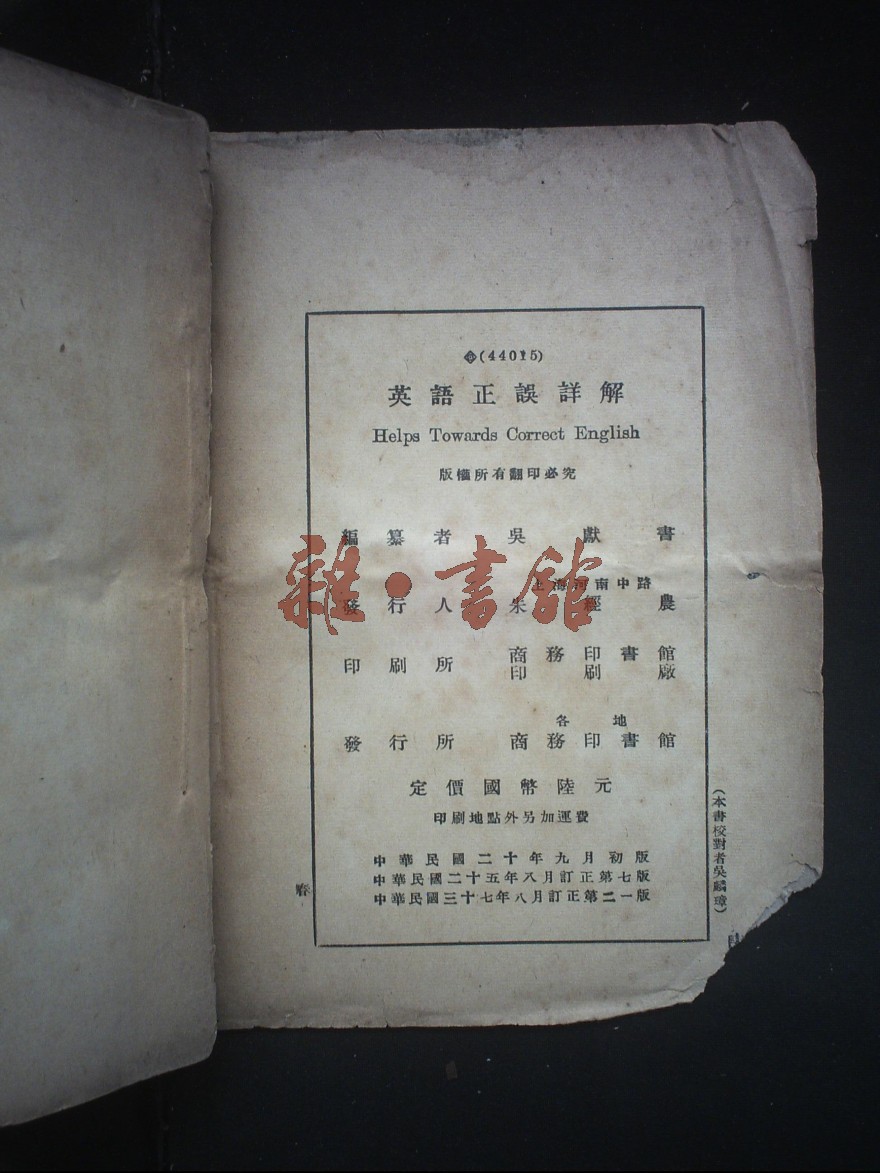 (44015)
英語正誤詳解
Helps Towards Correct English
版權所有翻印必究
編纂者 吳獻書
上海河南中路
發行人 朱經農
印刷所 商務印書館
印刷廠
各地
發行所 商務印書館
定價國幣陸元
印刷地點外另加運費
中華民國二十年九月初版
中華民國二十五年八月訂正第七版
中華民國三十七年八月訂正第二一版
(本書校對者吳麟璋)
雜·書館